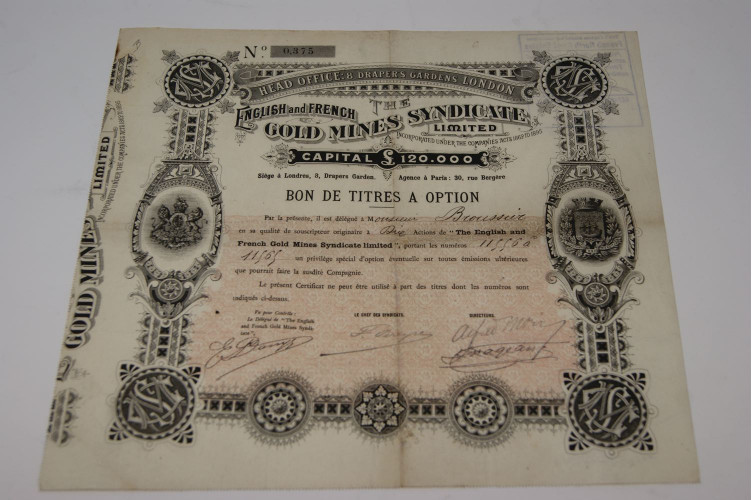 Nº 0,375
HEAD OFFICE: 8 DRAPER'S GARDENS LONDON
THE
ENGLISH and FRENCH
GOLD MINES SYNDICATE
LIMITED
INCORPORATED UNDER THE COMPANIES ACTS 1862 TO 1890
CAPITAL £ 120.000
Siège à Londres, 8, Drapers Garden. Agence à Paris: 30, rue Bergère
BON DE TITRES A OPTION
Par la présente, il est délégué à Monsieur
en sa qualité de souscripteur originaire à Dix Actions de "The English and
French Gold Mines Syndicate limited", portant les numéros 11556 à
11565 un privilège spécial d'option éventuelle sur toutes émissions ultérieures
que pourrait faire la susdite Compagnie.
Le présent Certificat ne peut être utilisé à part des titres dont les numéros sont
indiqués ci-dessus.
Vu pour Contrôle:
Le Délégué de "The English
and French Gold Mines Syndi-
cate".
LE CHEF DES SYNDICATS,
DIRECTEURS,
GOLD MINES
LIMITED
INCORPORATED UNDER THE COMPANIES ACTS